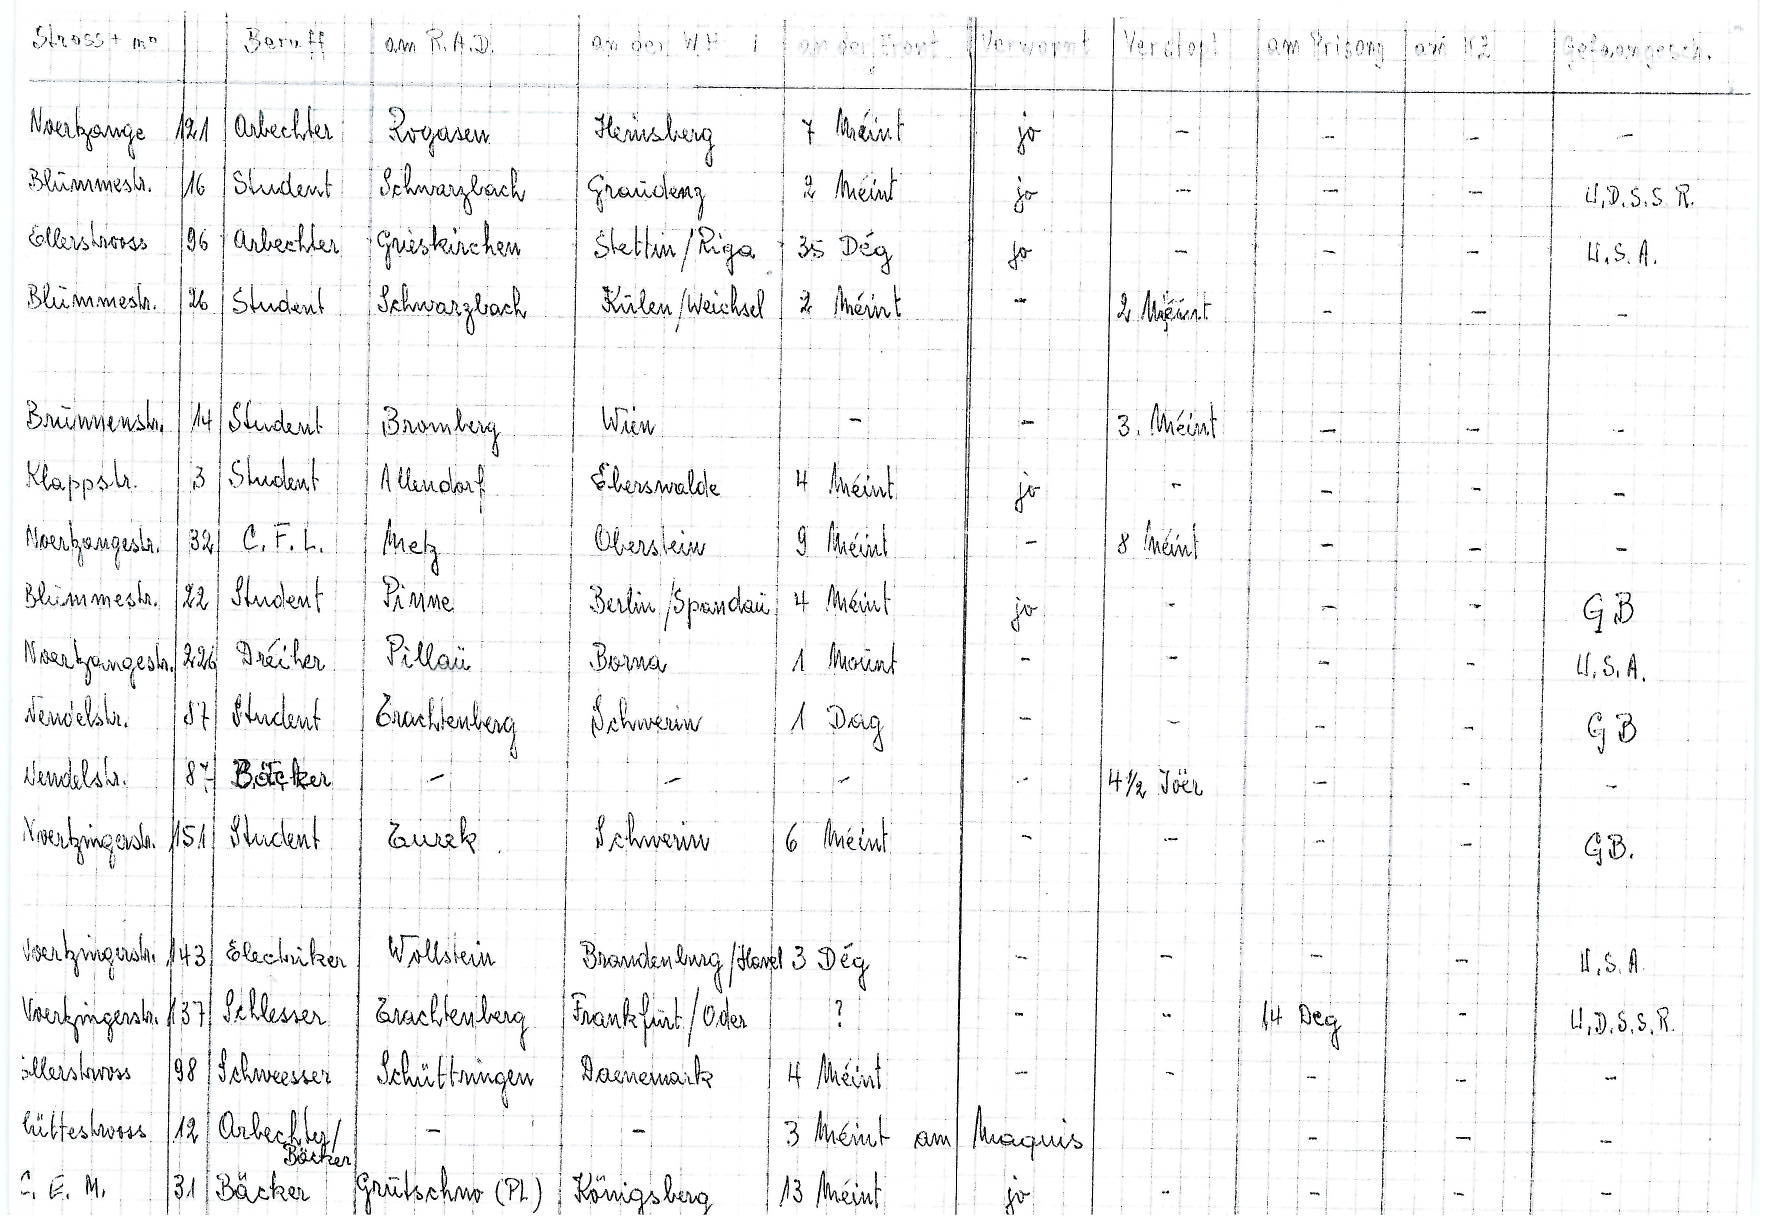 Strooss + nr Beruff am R.A.D. an der WH an der Front Verwonnt Verstopt am Prisong am KZ Gefaangesch.
Noertzange 121 Arbechter Rogasen Heinsberg 7 Méint jo - - - -
Blummestr. 16 Student Schwarzbach Graudenz 2 Méint jo - - - U.D.S.S.R.
Ellerstrooss 96 Arbechter Grieskirchen Stettin/Riga 35 Dég jo - - - U.S.A.
Blummestr. 26 Student Schwarzbach Külen/Weichsel 2 Méint - 2 Méint - - -
Brunnenstr. 14 Student Bromberg Wien - - 3. Méint - - -
Klappstr. 3 Student Allendorf Eberswalde 4 Méint jo - - - -
Noertzangestr. 32 C.F.L. Metz Oberstein 9 Méint - 8 Méint - - -
Blummestr. 22 Student Pinne Berlin/Spandau 4 Méint jo - - - GB
Noertzangestr. 226 Dréiher Pillau Borna 1 Mount - - - - U.S.A.
Wendelstr. 87 Student Trachtenberg Schwerin 1 Dag - - - - GB
Wendelstr. 87 Bäcker - - - - 4 1/2 Joër - - -
Noertzingerstr. 151 Student Turek Schwerin 6 Méint - - - - GB.
Noertzingerstr. 143 Electriker Wollstein Brandenburg/Havel 3 Dég - - - - U.S.A.
Noertzingerstr. 137 Schlesser Trachtenberg Frankfurt/Oder ? - - 14 Deg - U.D.S.S.R.
Ellerstrooss 98 Schweesser Schüttringen Daenemark 4 Méint - - - - -
Hüttestrooss 12 Arbechter/ - - 3 Méint am Maquis - - -
Bäcker
C.E.M. 31 Bäcker Grutschno (PL) Königsberg 13 Méint jo - - - -